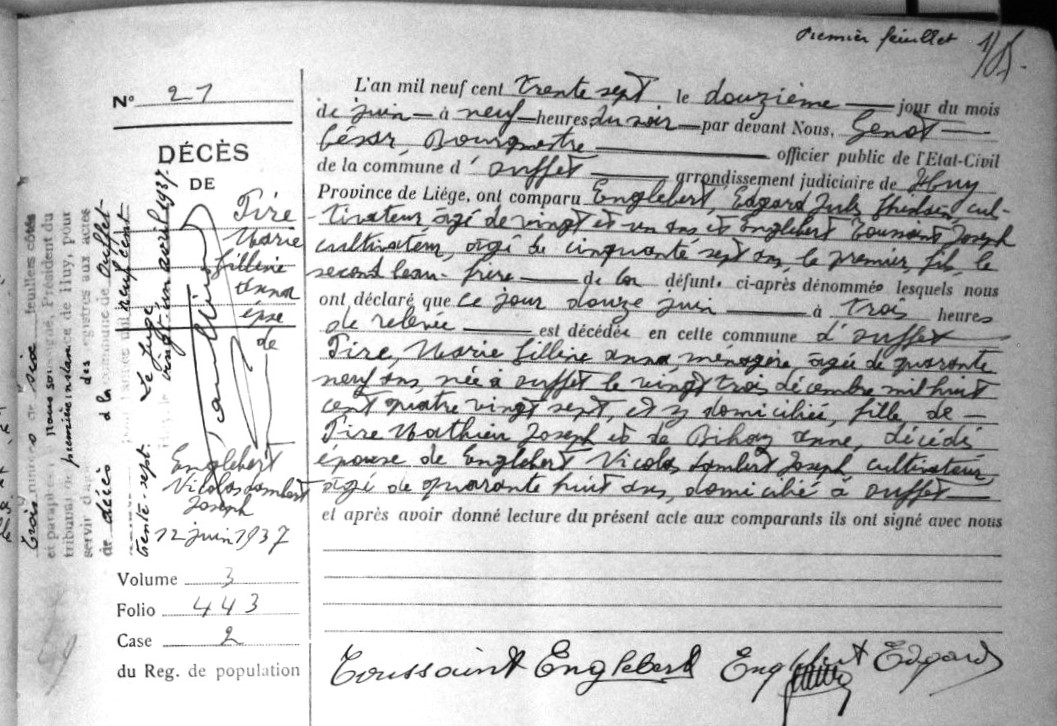 Premier feuillet 1/
N° 27
DÉCÈS
DE
Tire
Marie
Filline
Anna
épse
de
Englebert
Nicolas Lambert
Joseph
12 juin 1937
Volume 3
Folio 443
Case 2
du Reg. de population
L'an mil neuf cent trente sept le douzième jour du mois
de juin à neuf heures du soir par devant Nous, Genot
César Bourgmestre officier public de l'Etat-Civil
de la commune d'Ouffet arrondissement judiciaire de Huy
Province de Liége, ont comparu Englebert, Edgard Jules cul-
-tivateur âgé de vingt et un ans et Englebert Toussaint Joseph
cultivateur, âgé de cinquante sept ans, le premier, fils, le
second beau-frère de la défunte ci-après dénommée lesquels nous
ont déclaré que ce jour douze juin à trois heures
de relevée est décédée en cette commune d'Ouffet
Tire, Marie Filline Anna, ménagère, âgée de quarante
neuf ans, née à Ouffet le vingt trois décembre mil huit
cent quatre vingt sept, et y domiciliée, fille de
Tire Mathieu Joseph et de Bihay Anne, décédés
épouse de Englebert Nicolas Lambert Joseph cultivateur,
âgé de quarante huit ans, domicilié à Ouffet
et après avoir donné lecture du présent acte aux comparants ils ont signé avec nous
Toussaint Englebert Englebert Edgard
feuillets cotés
et paraphés Nous soussigné, Président du
tribunal de première instance de Huy, pour
servir des registres aux actes
de décès de la commune de Ouffet
mil neuf cent
trente-sept. Le Juge
vingt-un avril 1937.